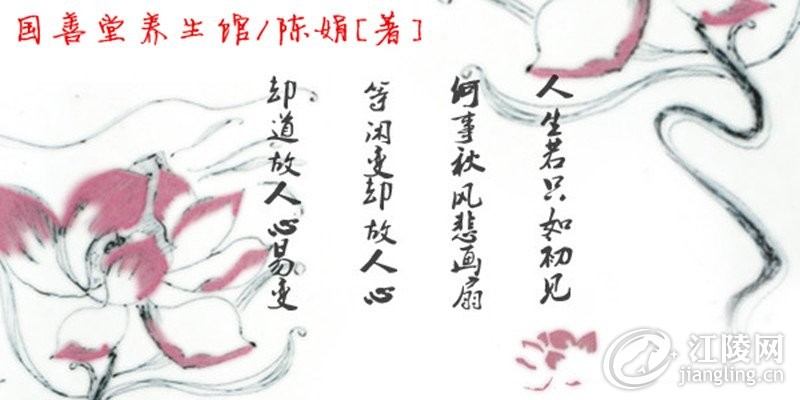 国善堂养生馆/陈娟[著]
人生若只如初见
何事秋风悲画扇
等闲变却故人心
却道故人心易变
江陵网
jiangling.cn